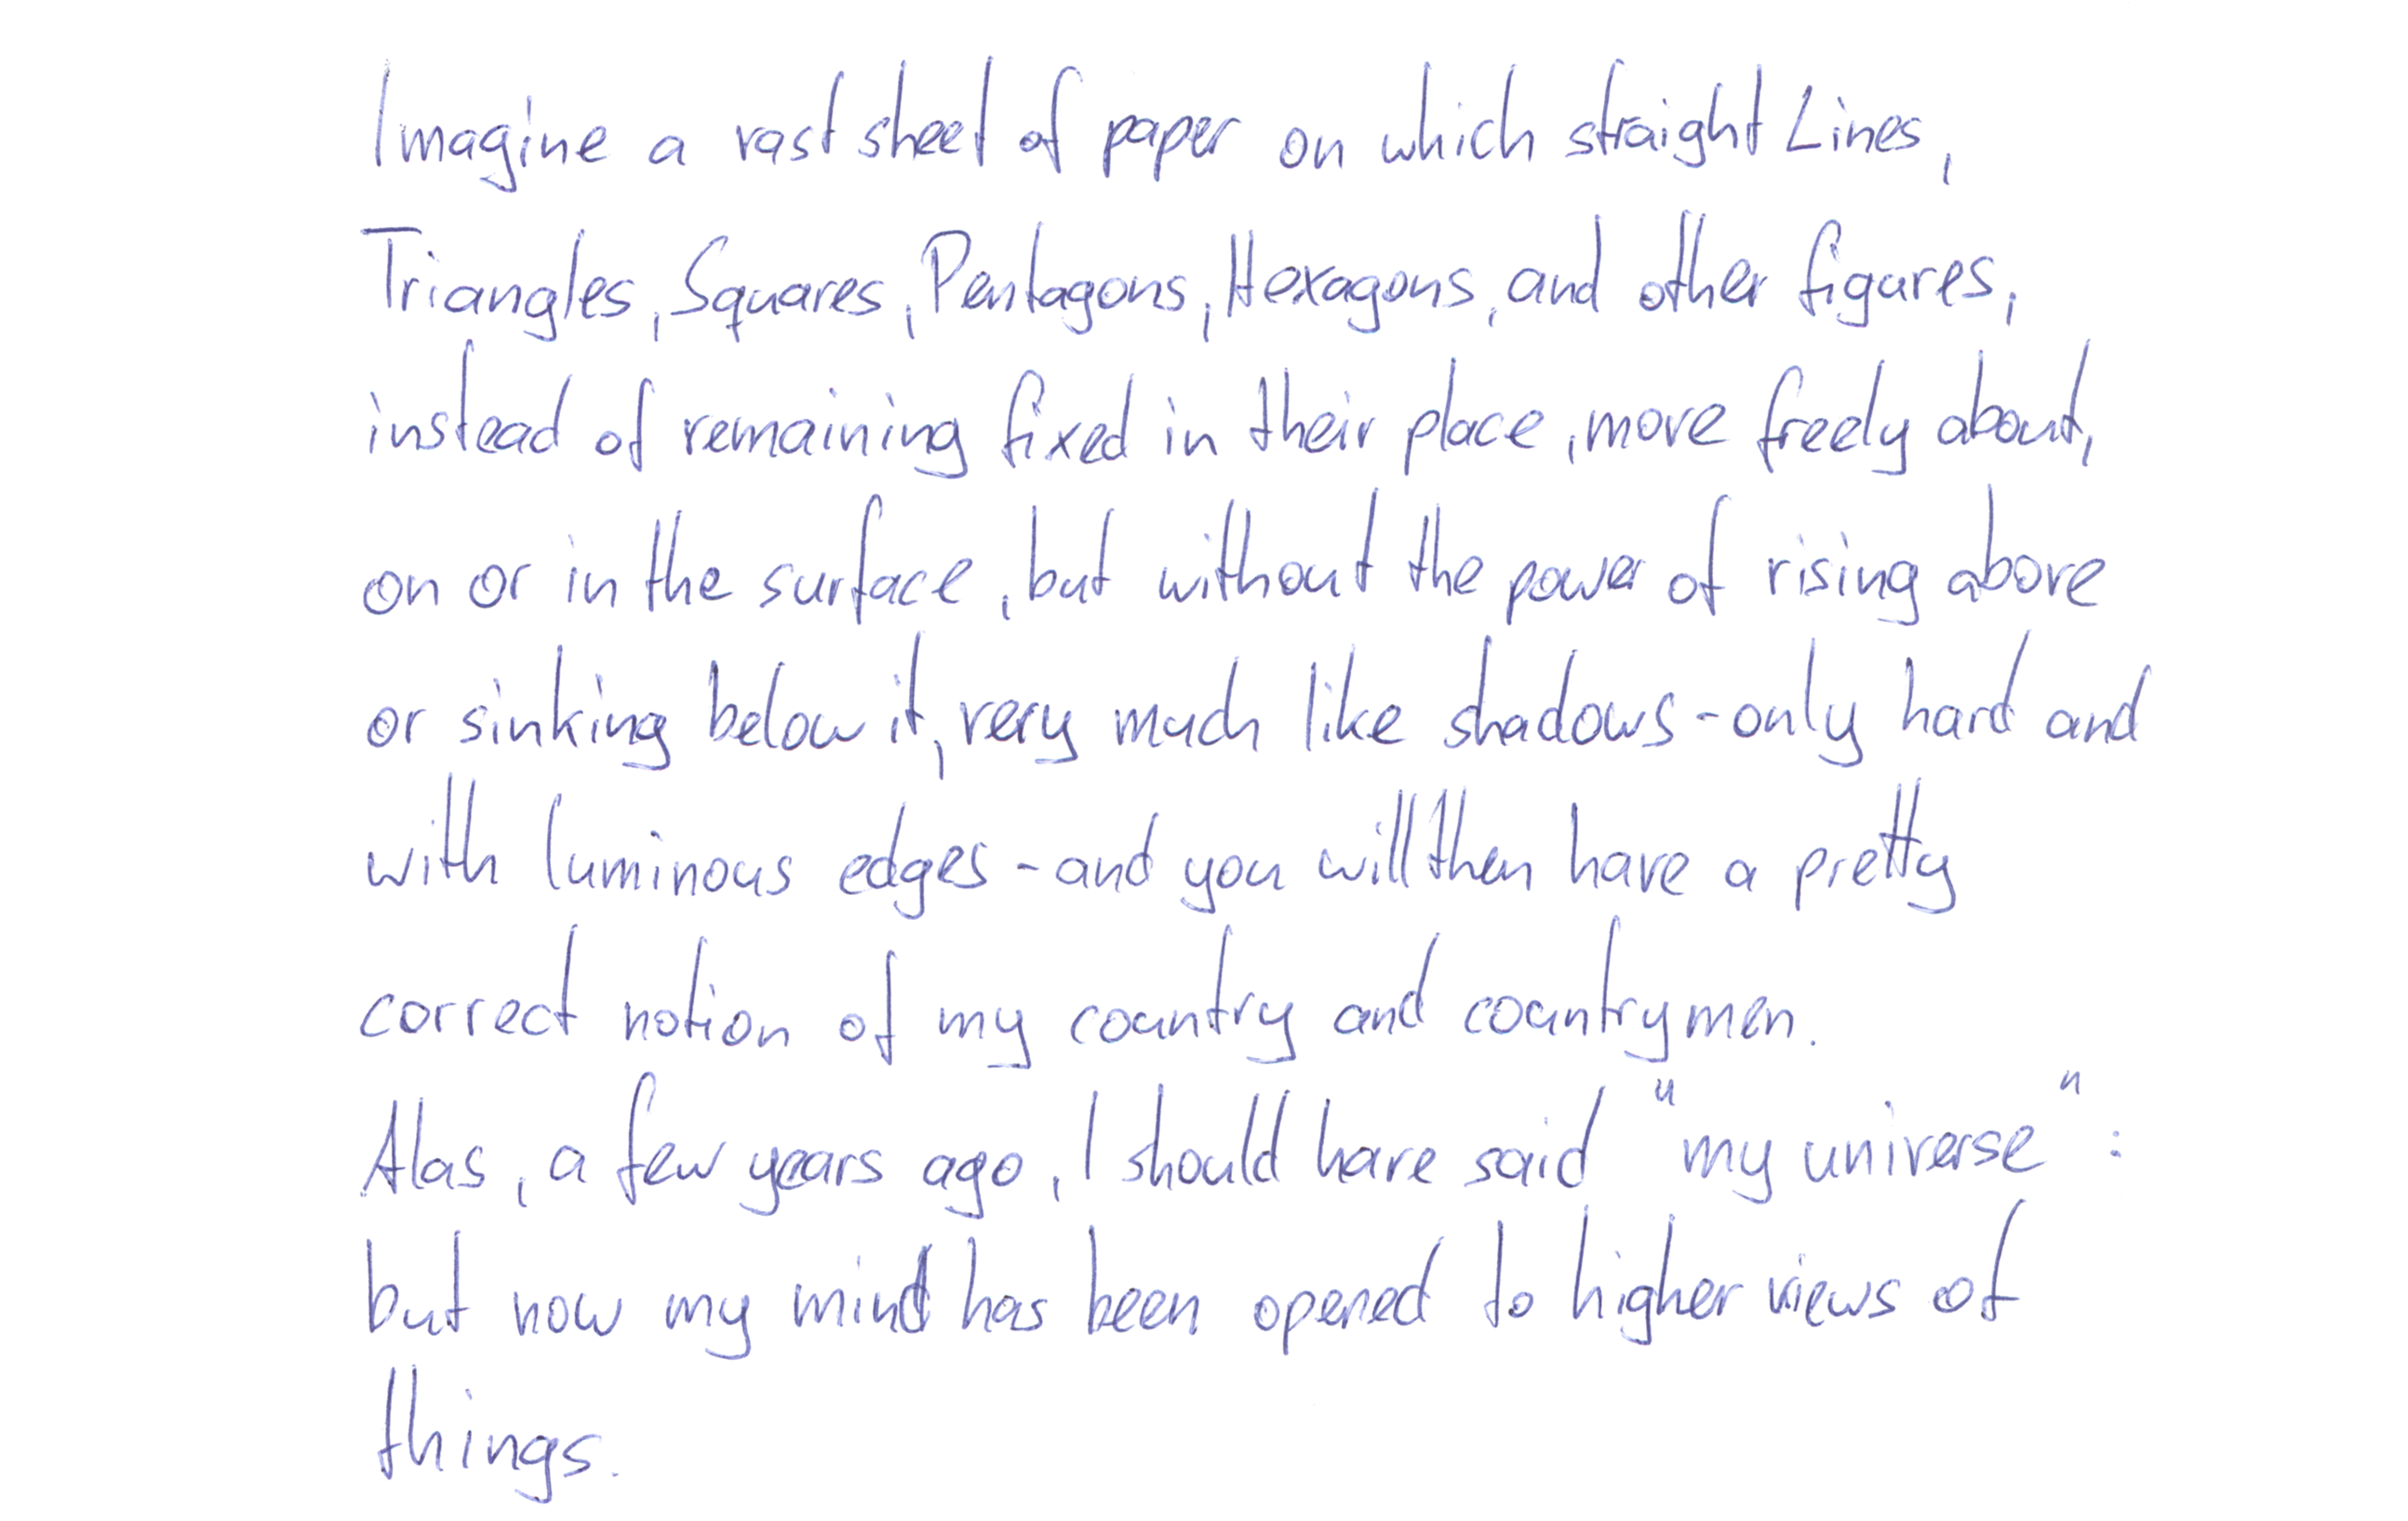 Imagine a vast sheet of paper on which straight Lines,
Triangles, Squares, Pentagons, Hexagons, and other figures,
instead of remaining fixed in their place, move freely about,
on or in the surface, but without the power of rising above
or sinking below it, very much like shadows - only hard and
with luminous edges - and you will then have a pretty
correct notion of my country and countrymen.
Alas, a few years ago, I should have said "my universe":
but now my mind has been opened to higher views of
things.